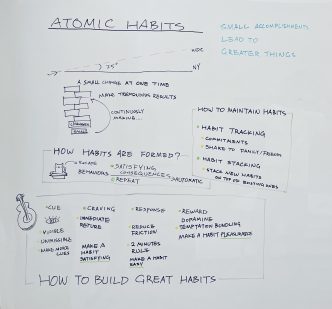 ATOMIC HABITS
SMALL ACCOMPLISHMENTS
LEAD TO
GREATER THINGS
NY
A SMALL CHANGE AT ONE TIME
MAKE TREMENDOUS RESULTS
CONTINUOUSLY
MAKING...
HOW TO MAINTAIN HABITS
HABIT TRACKING
COMMITMENTS
SHARE TO FAMILY/FRIENDS
HABIT STACKING
STACK NEW HABITS
ON TOP OF EXISTING ONES
HOW HABITS ARE FORMED?
BEHAVIORS
SATISFYING
CONSEQUENCES
REPEAT
AUTOMATIC
CUE
VISIBLE
CUES
CRAVING
IMMEDIATE
MAKE A
HABIT
SATISFYING
RESPONSE
REDUCE
FRICTION
2 MINUTES
RULE
MAKE A HABIT
EASY
REWARD
DOPAMINE
TEMPTATION BUNDLING
MAKE A HABIT PLEASURABLE
HOW TO BUILD GREAT HABITS